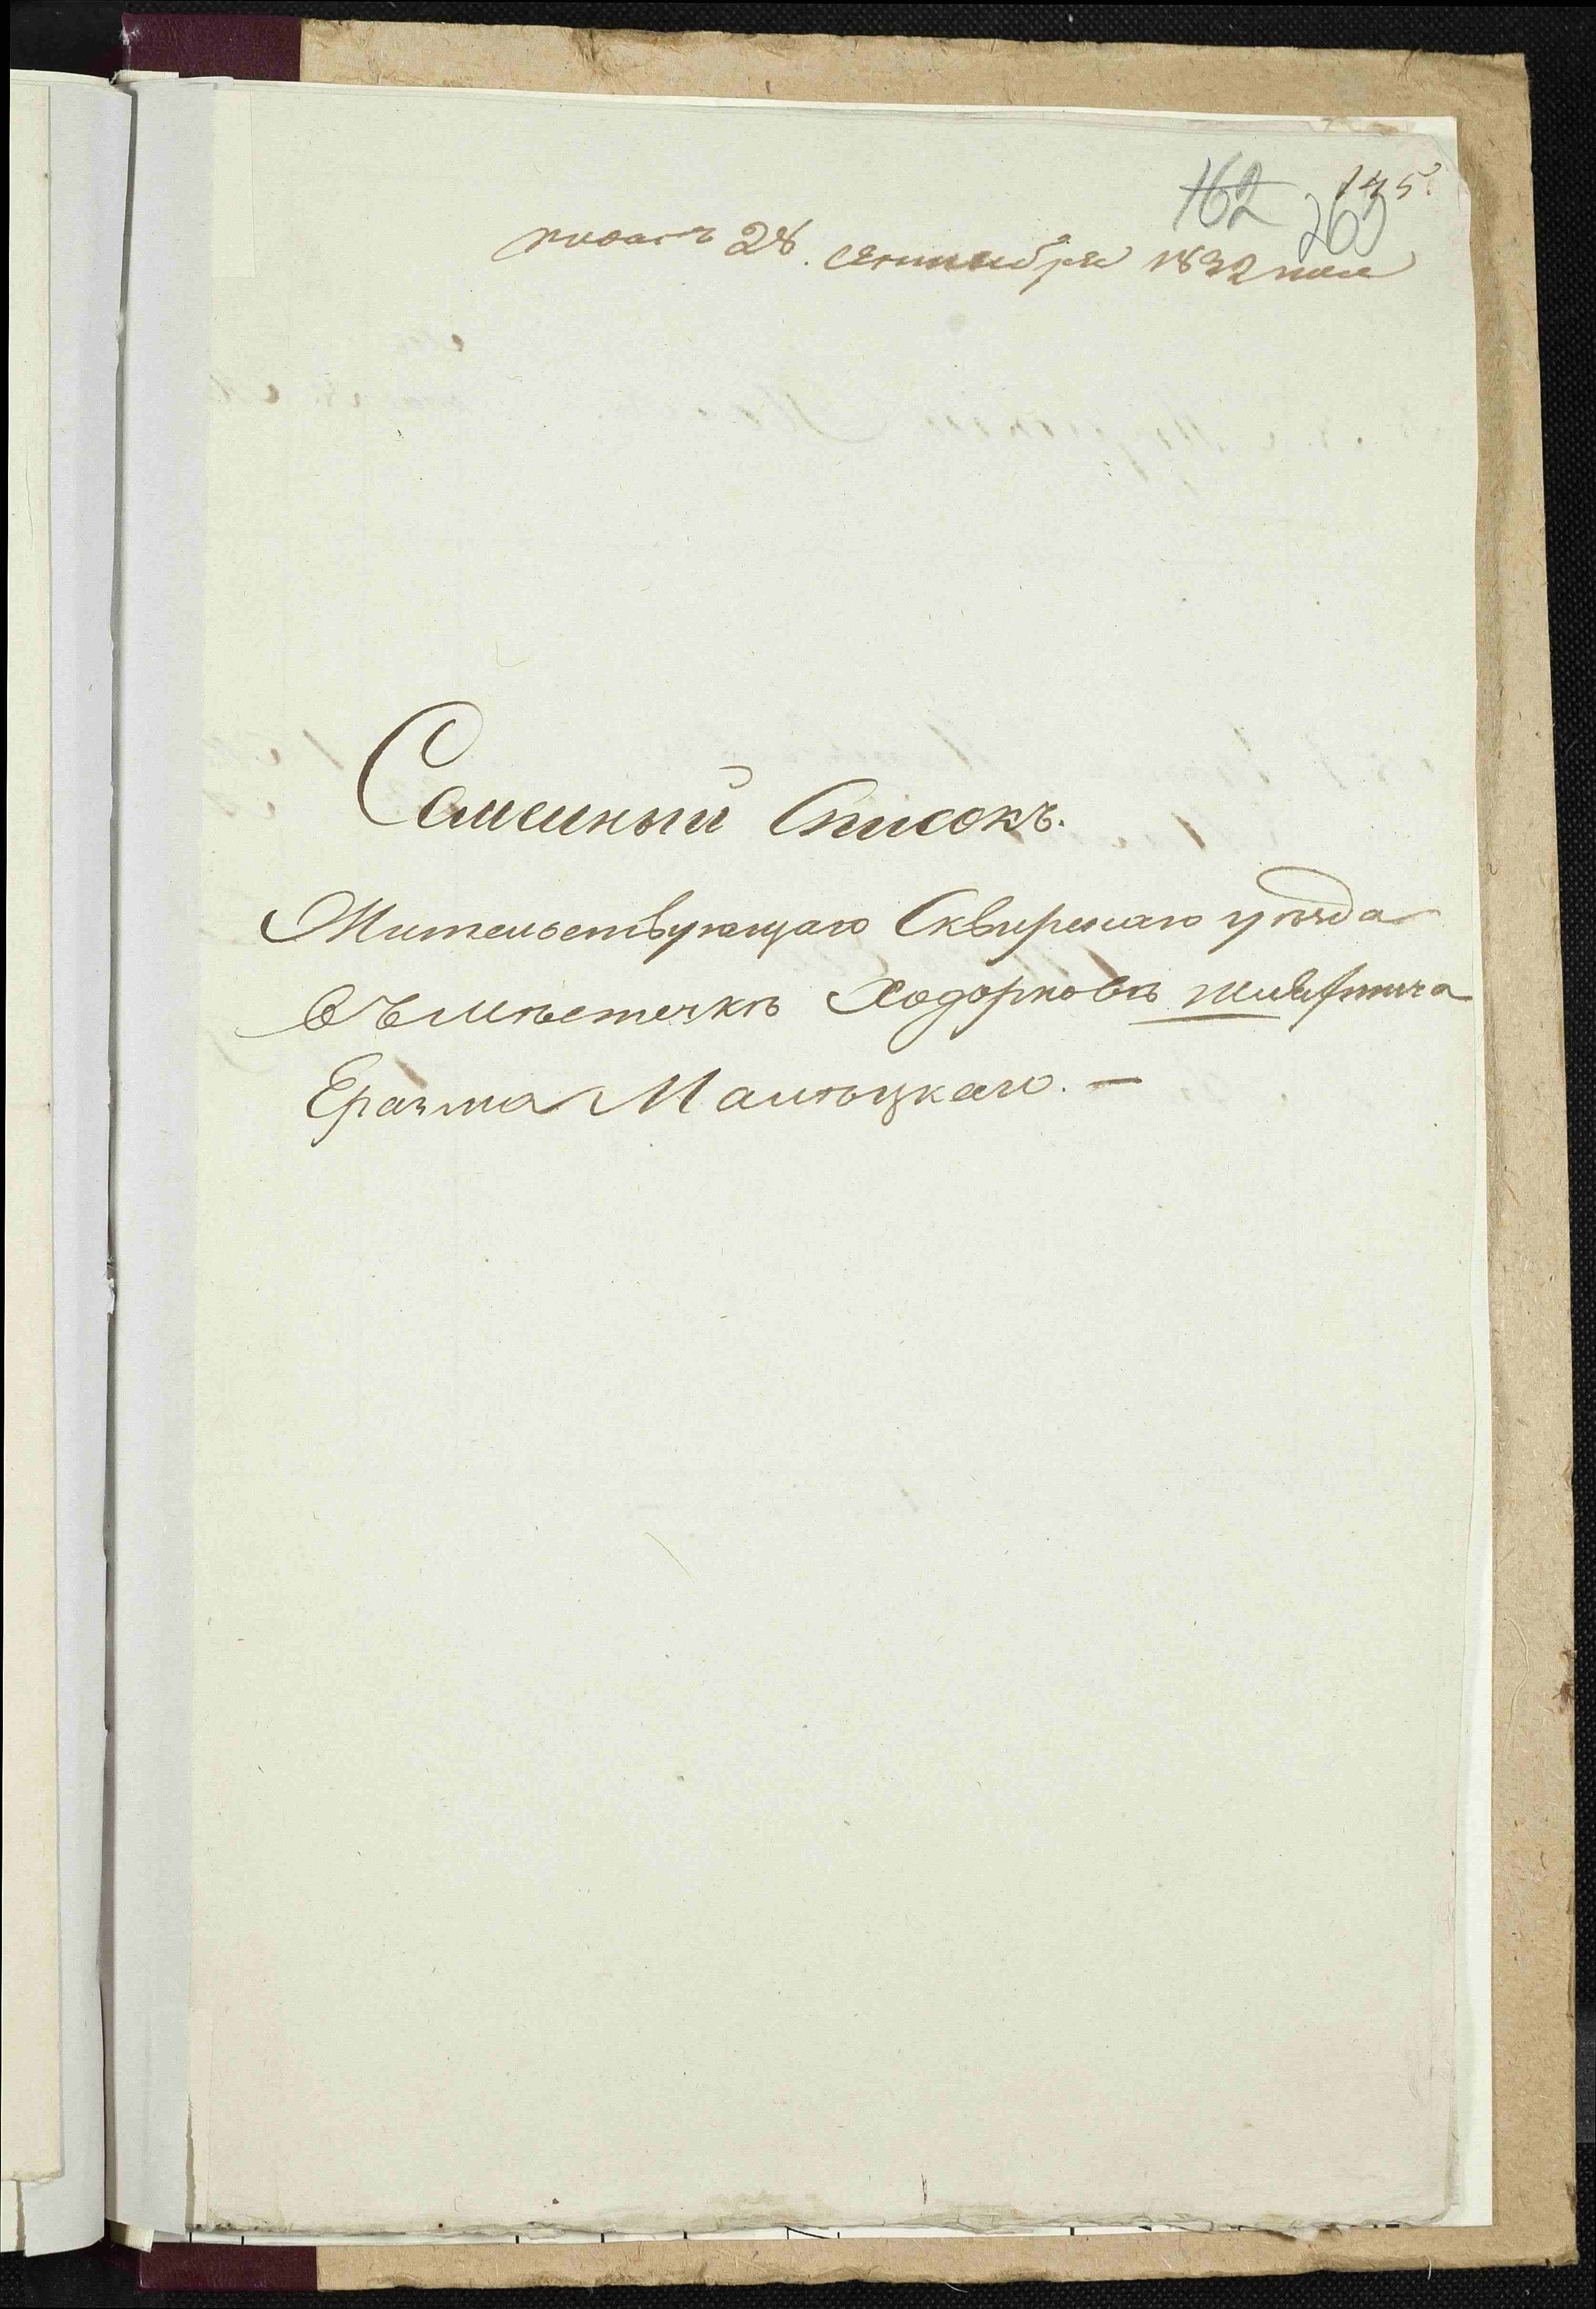 162 145
260
подан 28. сентября 1832 года
Семейный Списокъ.
Жительствующаго Сквирскаго уѣзда
въ мѣстечкѣ Ходорковѣ шляхтича
Еразма Малѣцкаго. —